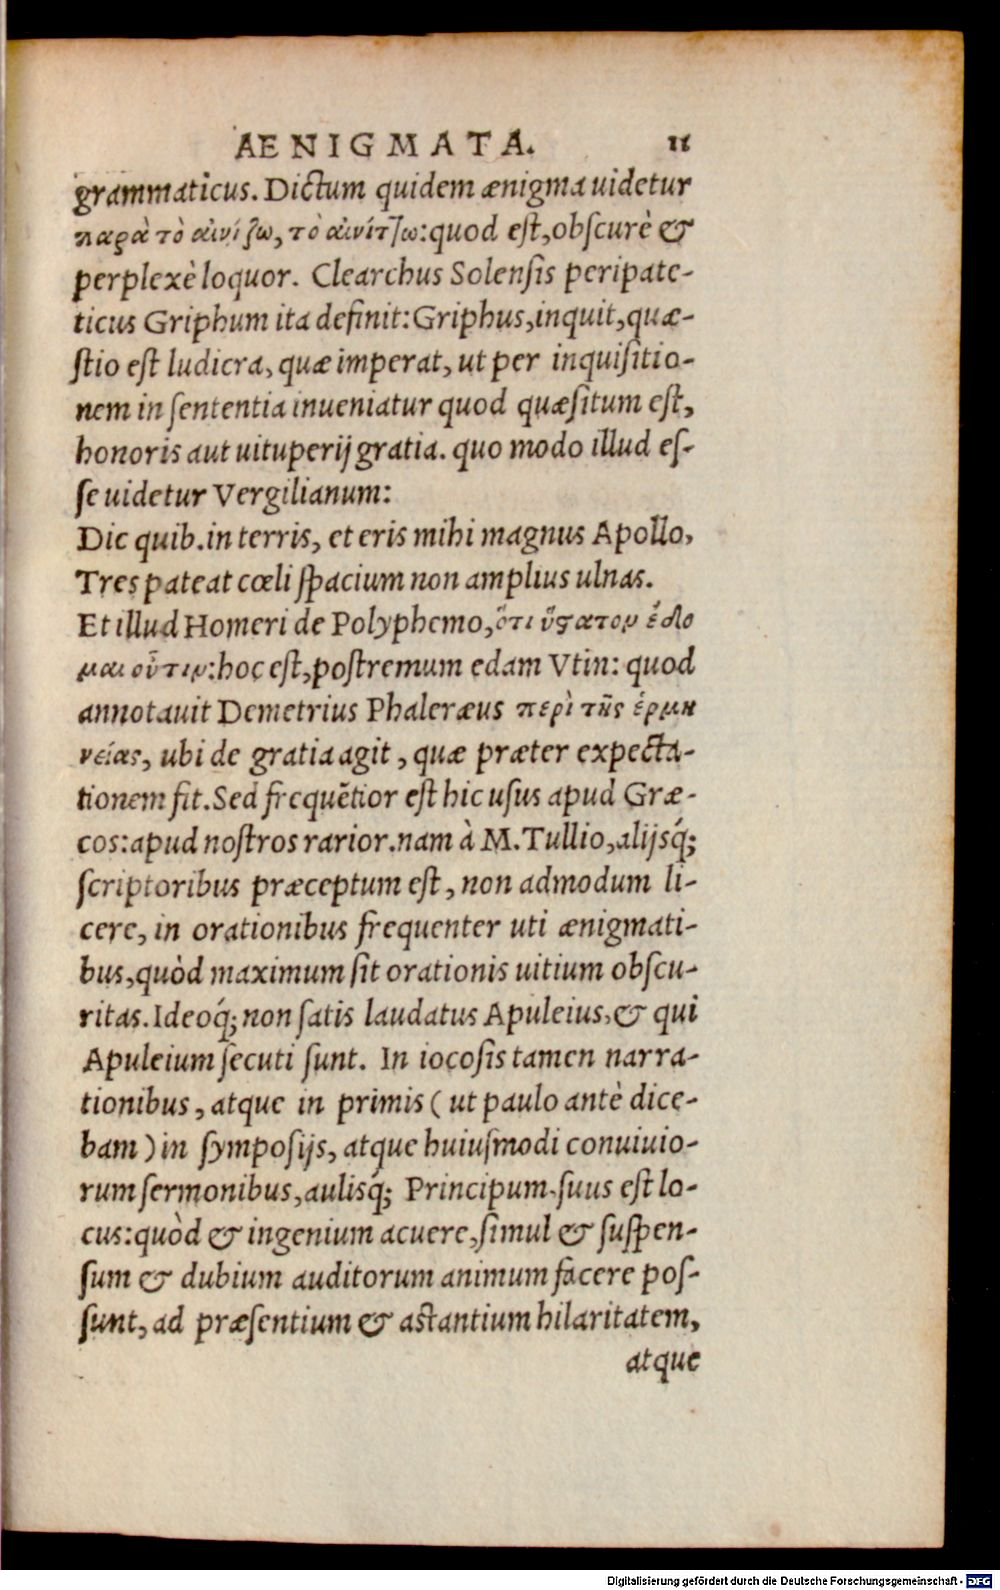 AENIGMATA. 11
grammaticus. Dictum quidem ænigma uidetur
παρὰ τὸ αἰνίζω, τὸ αἰνίτζω: quod est, obscurè &
perplexè loquor. Clearchus Solensis peripate-
ticus Griphum ita definit: Griphus, inquit, quæ-
stio est ludicra, quæ imperat, ut per inquisitio-
nem in sententia inueniatur quod quæsitum est,
honoris aut uituperij gratia. quo modo illud es-
se uidetur Vergilianum:
Dic quib. in terris, et eris mihi magnus Apollo,
Tres pateat cœli spacium non amplius ulnas.
Et illud Homeri de Polyphemo, ὅτι ὕϛατον ἔδο
μαι οὖτιν: hoc est, postremum edam Vtin: quod
annotauit Demetrius Phaleræus περὶ τῆς ἑρμη
νείας, ubi de gratia agit, quæ præter expecta-
tionem fit. Sed frequẽtior est hic usus apud Græ-
cos: apud nostros rarior. nam à M. Tullio, alijsq́;
scriptoribus præceptum est, non admodum li-
cere, in orationibus frequenter uti ænigmati-
bus, quòd maximum sit orationis uitium obscu-
ritas. Ideoq́; non satis laudatus Apuleius, & qui
Apuleium secuti sunt. In iocosis tamen narra-
tionibus, atque in primis ( ut paulo antè dice-
bam ) in symposijs, atque huiusmodi conuiuio-
rum sermonibus, aulisq́; Principum. suus est lo-
cus: quòd & ingenium acuere, simul & suspen-
sum & dubium auditorum animum facere pos-
sunt, ad præsentium & astantium hilaritatem,
atque
Digitalisierung gefördert durch die Deutsche Forschungsgemeinschaft - DFG